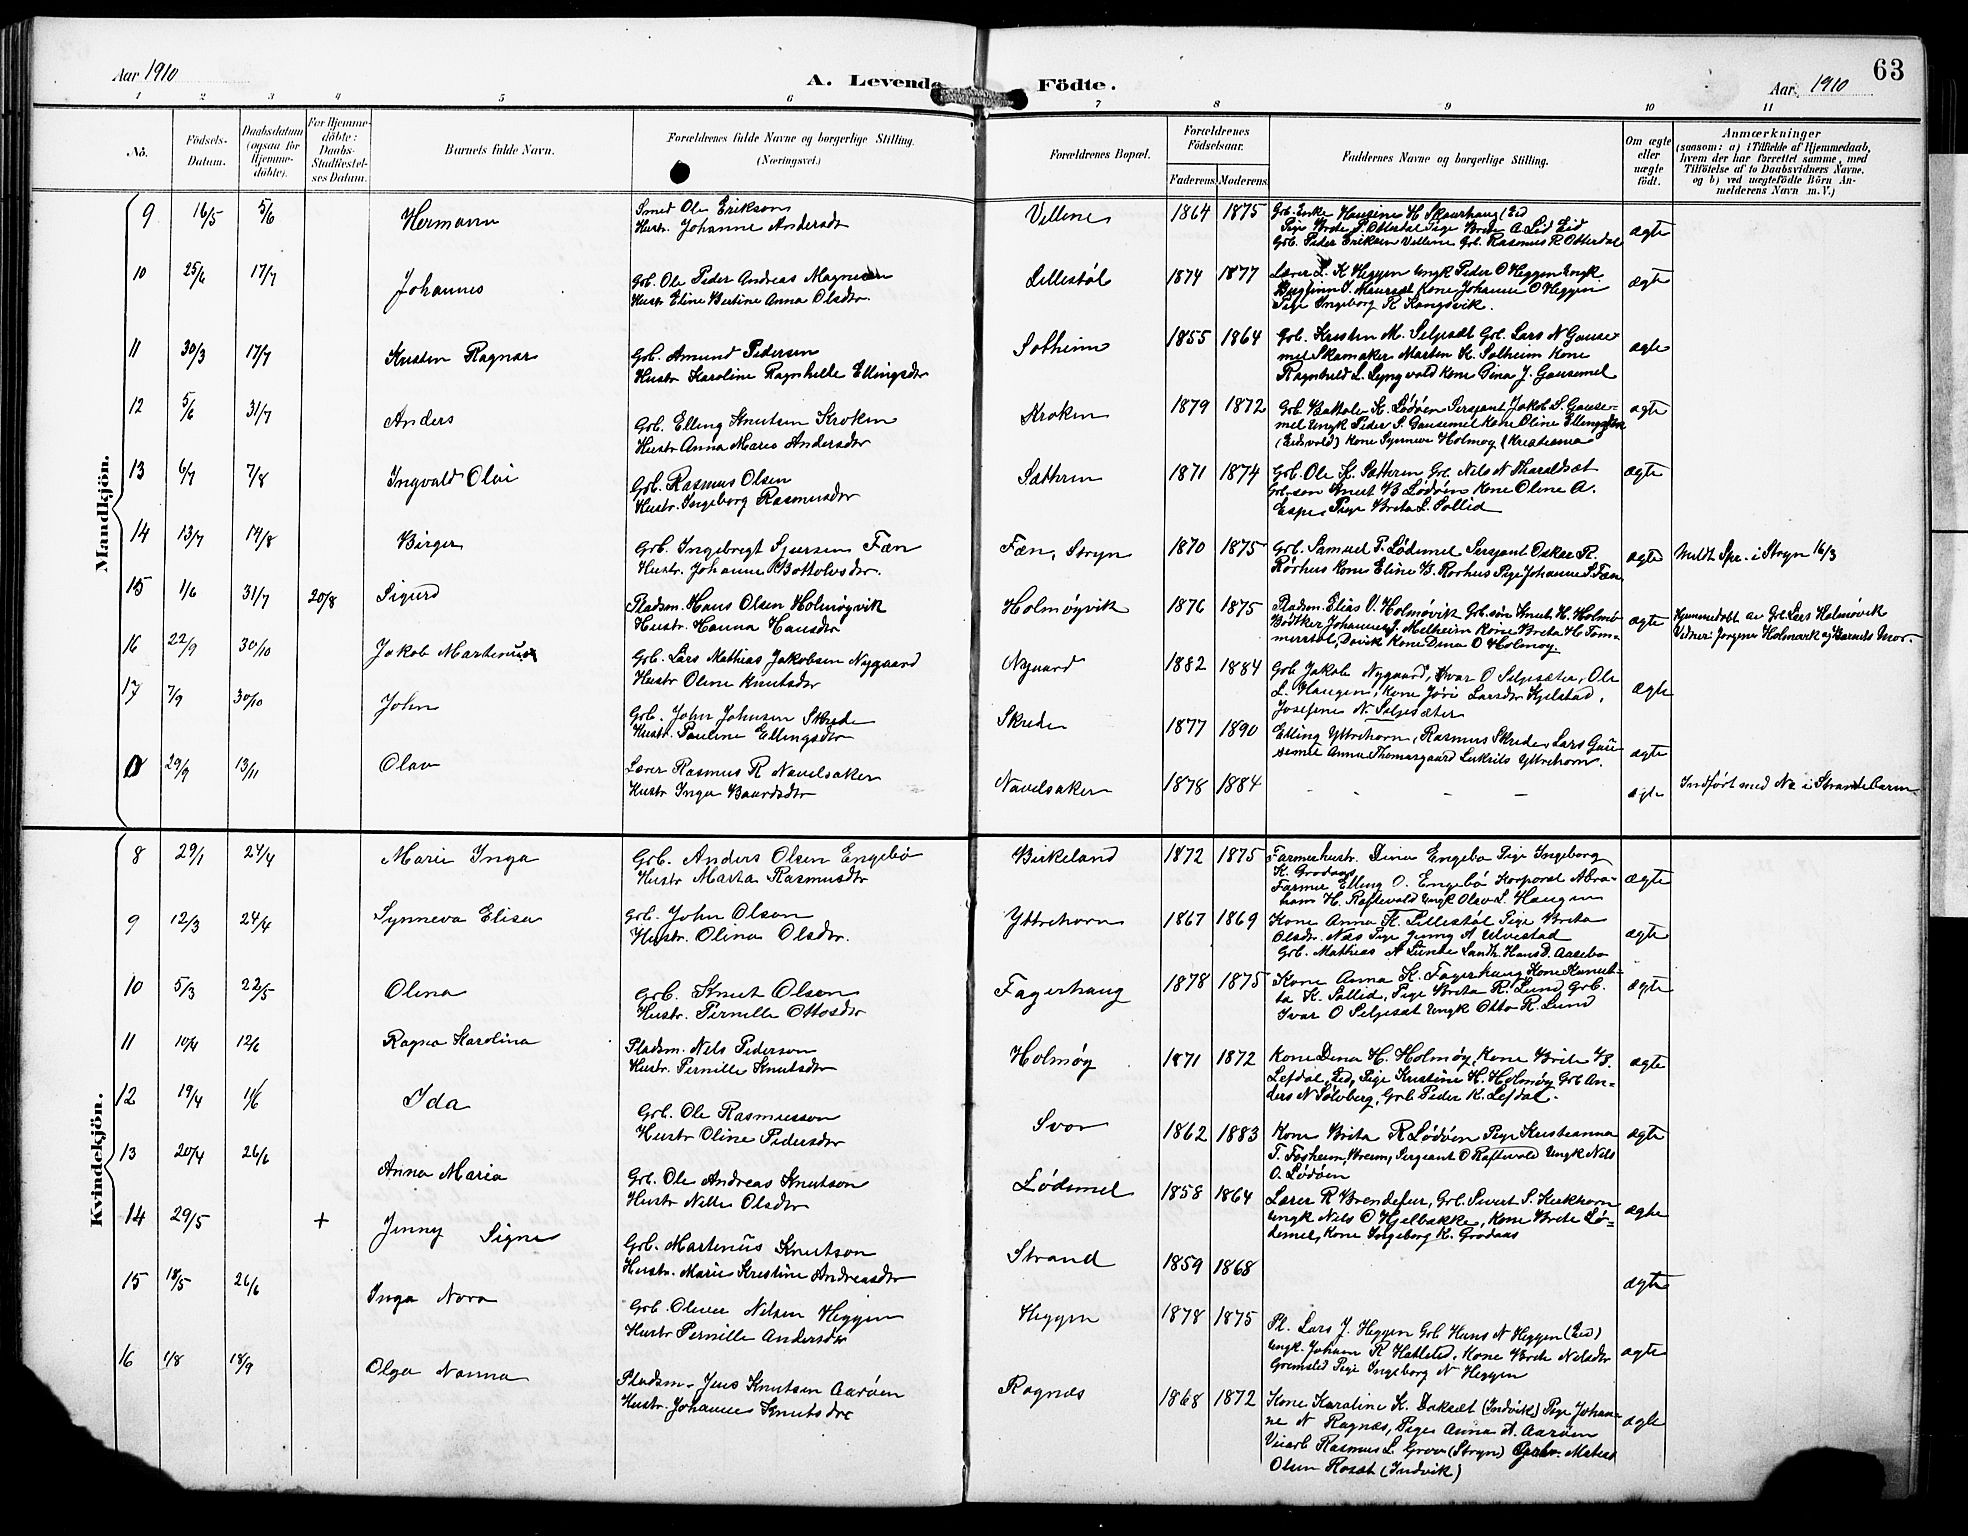 63
Aar 1910
A. Levende Födte.
Aar 1910
1 2 3 4 5 6 7 8 9 10 11
No.
Födsels-Datum.
Daabsdatum (ogsaa for Hjemme-döbte).
For Hjemme-döbte: Daabs-Stadfæstel-ses Datum.
Barnets fulde Navn.
Forældrenes fulde Navne og borgerlige Stilling. (Næringsvei.)
Forældrenes Bopæl.
Forældrenes Födselsaar.
Faderens. Moderens.
Faddernes Navne og borgerlige Stilling.
Om ægte eller uægte födt.
Anmærkninger
(saasom: a) i Tilfælde af Hjemmedaab, hvem der har forrettet samme, med Tilföielse af to Daabsvidners Navne, og b) ved uægtefödte Börn An-melderens Navn m. V.)
Mandkjön.
9 16/5 5/6 Hermann
Smed Ole Erikson
Hustr. Johanne Andersdr
Vellene 1864 1875
Grb. Enke Hansine H Skaarhaug (Eid
Pige Brite P. Otterdal Pige Brite A Lid Eid
Grb. Peder Eriksen Vellene Grb. Rasmus R Otterdal
ægte
10 25/6 17/7 Johannes
Grb. Ole Peder Andreas Magnusen
Hustr Eline Bertine Anna Olsdr.
Lillestøl 1874 1877
Lærer L. K Heggen Ungk Peder O Heggen Ungk
Kone Johanne O Heggen
Pige Ingeborg R Kongsvik.
ægte
11 30/3 17/7 Kristen Ragnar
Grb. Amund Pedersen
Hustr Karoline Ragnhilde Ellingsdr
Solheim 1855 1864
Grb. Kristen M. Seljesæt Grb. Lars N Gause-
mel Skomaker Marten K. Solheim Kone
Ragnhild L. Lyngvold Kone Gina J. Gausemel
ægte
12 5/6 31/7 Anders
Grb. Elling Knutsen Kroken
Hustr Anna Marie Andersdr
Kroken 1879 1872
Grb. Bottolv K. Lødøen Sersjant Jakob S. Gause-
mel Ungk Peder S. Gausemel Kone Oline Ellingsdtr
(Eidsvold) Kone Synneve Holmøy (Kristiania
ægte
13 6/7 7/8 Ingvald Olai
Grb. Rasmus Olsen
Hustr. Ingeborg Rasmusdr
Sættren 1871 1874
Grb. Ole K. Sættren Grb. Nils N Tharaldsæt
Grb.søn Knut B Lødøen Kone Oline A.
Espe Pige Brita L. Sollid
ægte
14 13/7 14/8 Birger
Grb. Ingebrigt Sjursen Fæn
Hustr. Johanne Bottolvsdr.
Fæn, Stryn 1870 1875
Grb. Samuel P. Lødemel Sersjant Oskar R.
Rørhus Kone Eline B. Rørhus Pige Johanne S. Fæn
ægte
Meldt Spr. i Stryn 16/3
15 1/6 31/7 20/8 Sigurd
Pladsm. Hans Olsen Holmøyvik
Hustr. Hanna Hansdr
Holmøyvik 1876 1875
Pladsm. Elias O. Holmøvik Grb.søn Knut H. Holmø
Bødtker Johannes J. Melheim Kone Brita H. Tom-
merstøl, Davik Kone Dina O Holmøy.
ægte
Hjemmedøbt av Grb. Lars Holmøvik
Vidner: Jørgine Holmøvik og Barnets Mor.
16 22/9 30/10 Jakob Martinus
Grb. Lars Mathias Jakobsen Nygaard
Hustr Oline Knutsdr
Nygaard 1882 1884
Grb Jakob Nygaard, Ivar O Seljesæter, Ole
L. Haugen, Kone Jori Larsdr Kjelstad,
Josefine N. Seljesæter
ægte
17 7/9 30/10 John
Grb. John Johnsen Skrede
Hustr. Pauline Ellingsdr
Skrede 1877 1890
Elling Yttrehorn, Rasmus Skrede, Lars Gau-
semel Anna Thomasgaard Lukris Yttrehorn.
ægte
0 29/9 13/11 Olav
Lærer Rasmus R Navelsaker
Hustr Inga Baardsdr
Navelsaker 1878 1884
- - -
ægte
Indført med No i Strandebarm
Kvindekjön.
8 29/1 24/4 Marie Inga
Grb. Anders Olsen Engebø
Hustr Marta Rasmusdr
Birkeland 1872 1875
Farmerhustr. Dina Engebø Pige Ingeborg
K. Grodaas
Farmer Elling O. Engebø Korporal Abra-
ham H. Raftevold Ungk Olav L. Haugen
ægte
9 12/3 24/4 Synneva Elisa
Grb. John Olson
Hustr. Olina Olsdr.
Yttrehorn 1867 1869
Kone Anna K. Lillestøl Pige Brita
Olsdr. Nes Pige Jenny A Ulvestad
Grb. Mathias A Lunde Landh. Hans D. Arsebø
ægte
10 5/3 22/5 Olina
Grb. Knut Olsen
Hustr. Pernille Ottosdr
Fagerhaug 1878 1875
Kone Anna K. Fagerhaug Kone Kanut-
ta K. Sollid, Pige Brita R. Lund, Grb.
Ivar O Seljesæt Ungk Otto R. Lund
ægte
11 10/4 12/6 Ragna Karolina
Pladsm. Nils Pederson
Hustr. Pernille Knutsdr
Holmøy 1871 1872
Kone Dina H. Holmøy, Kone Brite B.
Lefdal, Eid, Pige Kristine H. Holmøy Grb An-
ders N Sølvberg, Grb Peder K. Lefdal.
ægte
12 19/4 1/6 Ida
Grb. Ole Rasmusson
Hustr Oline Pedersdr
Svor 1862 1883
Kone Brita R Lødøen Pige Kristianna
T. Fosheim, Breim, Sergeant O Raftevold Ungk Nils
O. Lødøen
ægte
13 20/4 26/6 Anna Maria
Grb. Ole Andreas Knutson
Hustr Nille Olsdr
Lødemel 1858 1864
Lærer R Brendefur, Grb. Sivert S. Kirkhorn
Ungk Nils O Hjelbakke, Kone Brite Lø-
demel, Kone Ingeborg K. Grodaas
ægte
14 29/5 + Jenny Signe
Grb. Martinus Knutson
Hustr. Marie Kristine Andreasdr
Strand 1859 1868
ægte
15 18/5 26/6 Inga Nora
Grb Oliver Nilsen Heggen
Hustr Pernille Andersdr
Heggen 1878 1875
Pl. Lars J. Heggen Grb Hans N Heggen (Eid)
Ungk. Johan R Hatlelid, Kone Brite Nilsdr
Gremslid Pige Ingeborg N Heggen
ægte
16 1/8 18/9 Olga Nanna
Pladsm. Jens Knutsen Aarøen
Hustr. Johanne Knutsdr
Ragnæs 1868 1872
Kone Karoline K. Dokset (Indvik) Pige Johan-
ne N Ragnæs, Pige Anna A. Aarøen
Veiarb Rasmus L. Grov (Stryn) Gaardbr. Matias
Olsen Rosæt (Indvik)
ægte